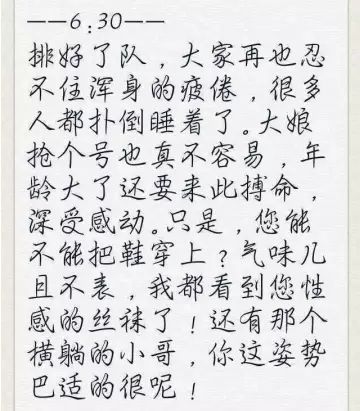 ——6:30——
排好了队，大家再也忍
不住浑身的疲倦，很多
人都扑倒睡着了。大娘
抢个号也真不容易，年
龄大了还要来此搏命，
深受感动。只是，您能
不能把鞋穿上？气味儿
且不表，我都看到您性
感的丝袜了！还有那个
横躺的小哥，你这姿势
巴适的很呢！